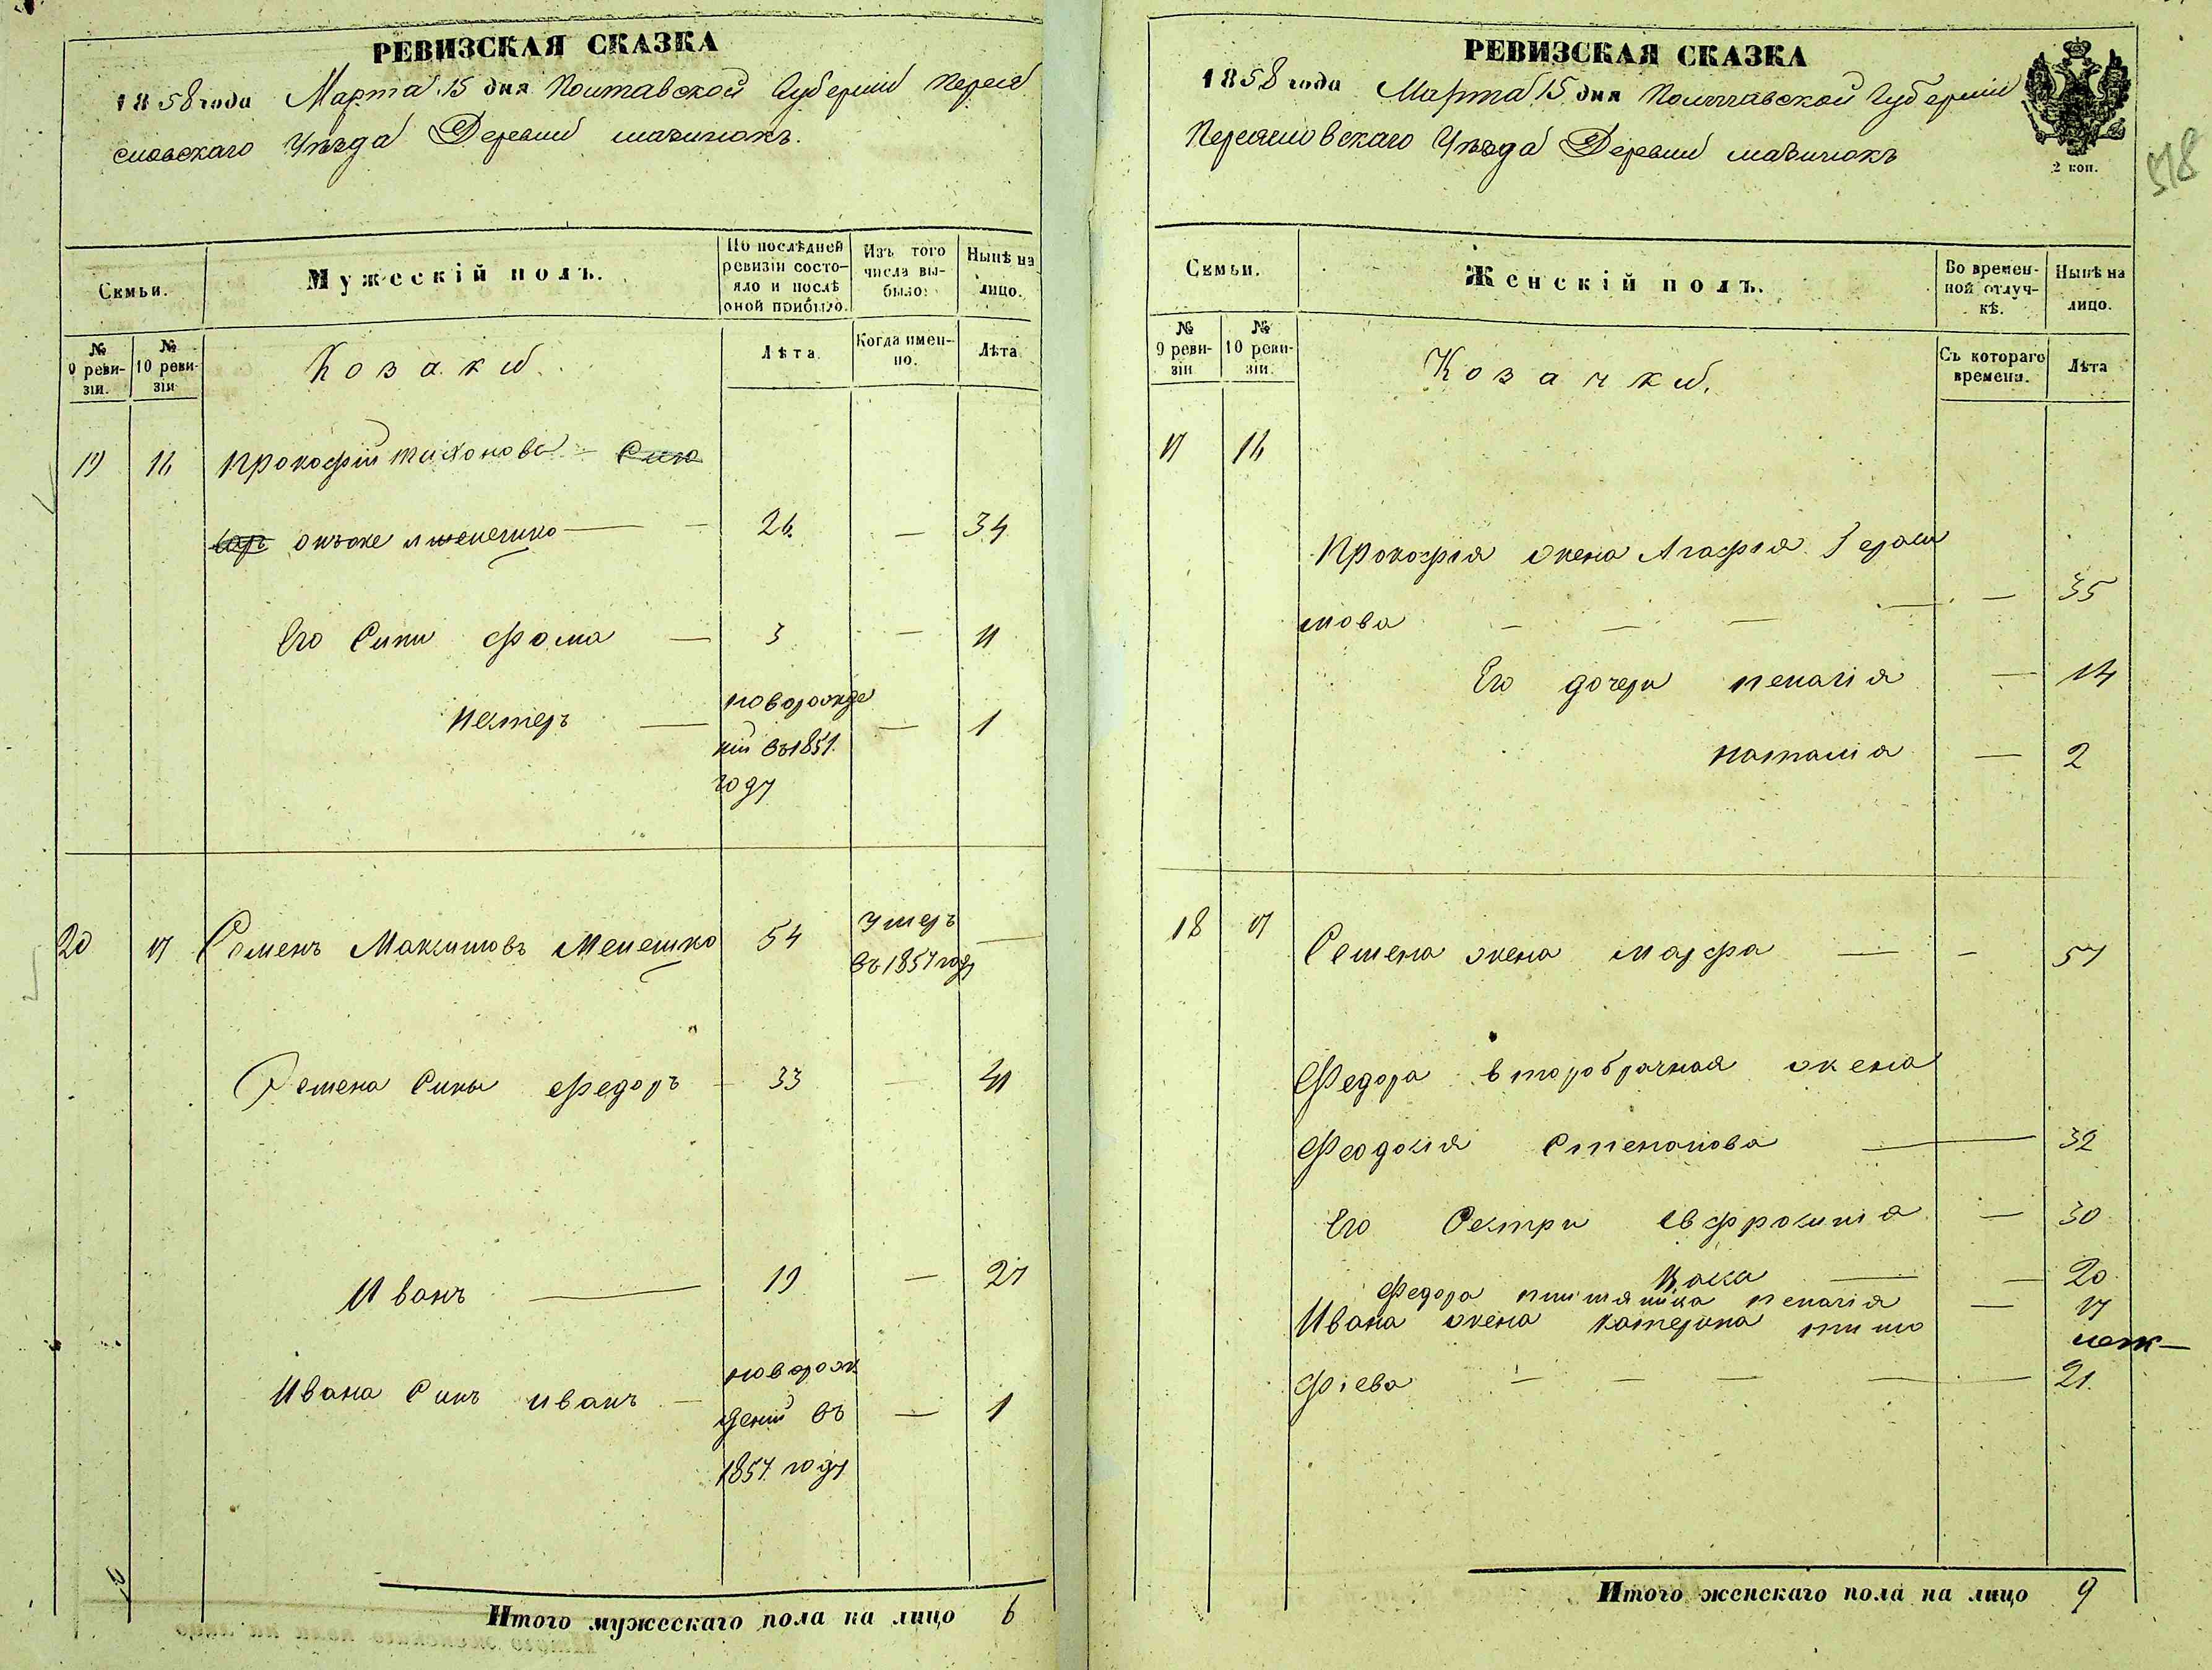 РЕВИЗСКАЯ СКАЗКА
1858 года Марта 15 дня Полтавской Губерніи Перея
словскаго Уѣзда Деревни
Семьи.
Мужескій полъ.
По послѣдней ревизіи состояло и послѣ оной прибыло.
Изъ того числа выбыло:
Нынѣ на лицо.
№ 9 ревизіи.
№ 10 ревизіи
Козаки
Лѣта
Когда именно.
Лѣта
19 16 Прокофій Тихоновъ
онъ же 26 — 34
Его Сини Фома — 3 — 11
Нестеръ — новорожде
ній въ 1857.
году — 1
20 17 Семенъ Максимовъ Мелешко 54 умеръ
въ 1857 году —
Семена Сины Федоръ — 33 — 41
Иванъ — 19 — 27
Ивана Синъ Иванъ — новорож
деній въ — 1
1857 году
Итого мужескаго пола на лицо 6
РЕВИЗСКАЯ СКАЗКА
1858 года Марта 15 дня Полтавской Губерніи
Переясловскаго Уѣзда Деревни
2 коп.
518
Семьи.
Женскій полъ.
Во временной отлучкѣ.
Нынѣ на лицо.
№ 9 ревизіи
№ 10 ревизіи.
Козачки.
Съ котораго времени.
Лѣта
17 16
Прокофія жена Агафія Гераси
мова — — — — — 35
Его дочери Пелагія — 14
Наталія — 2
18 17
Семена жена Марфа — — 57
Федора второбрачная жена
Феодосія Степанова — 32
Его Сестри Евфросинія — 30
— — 20
Федора Пелагія — 17
Ивана жена Катерина Тимо
фіева — — — — — 21.
Итого женскаго пола на лицо 9